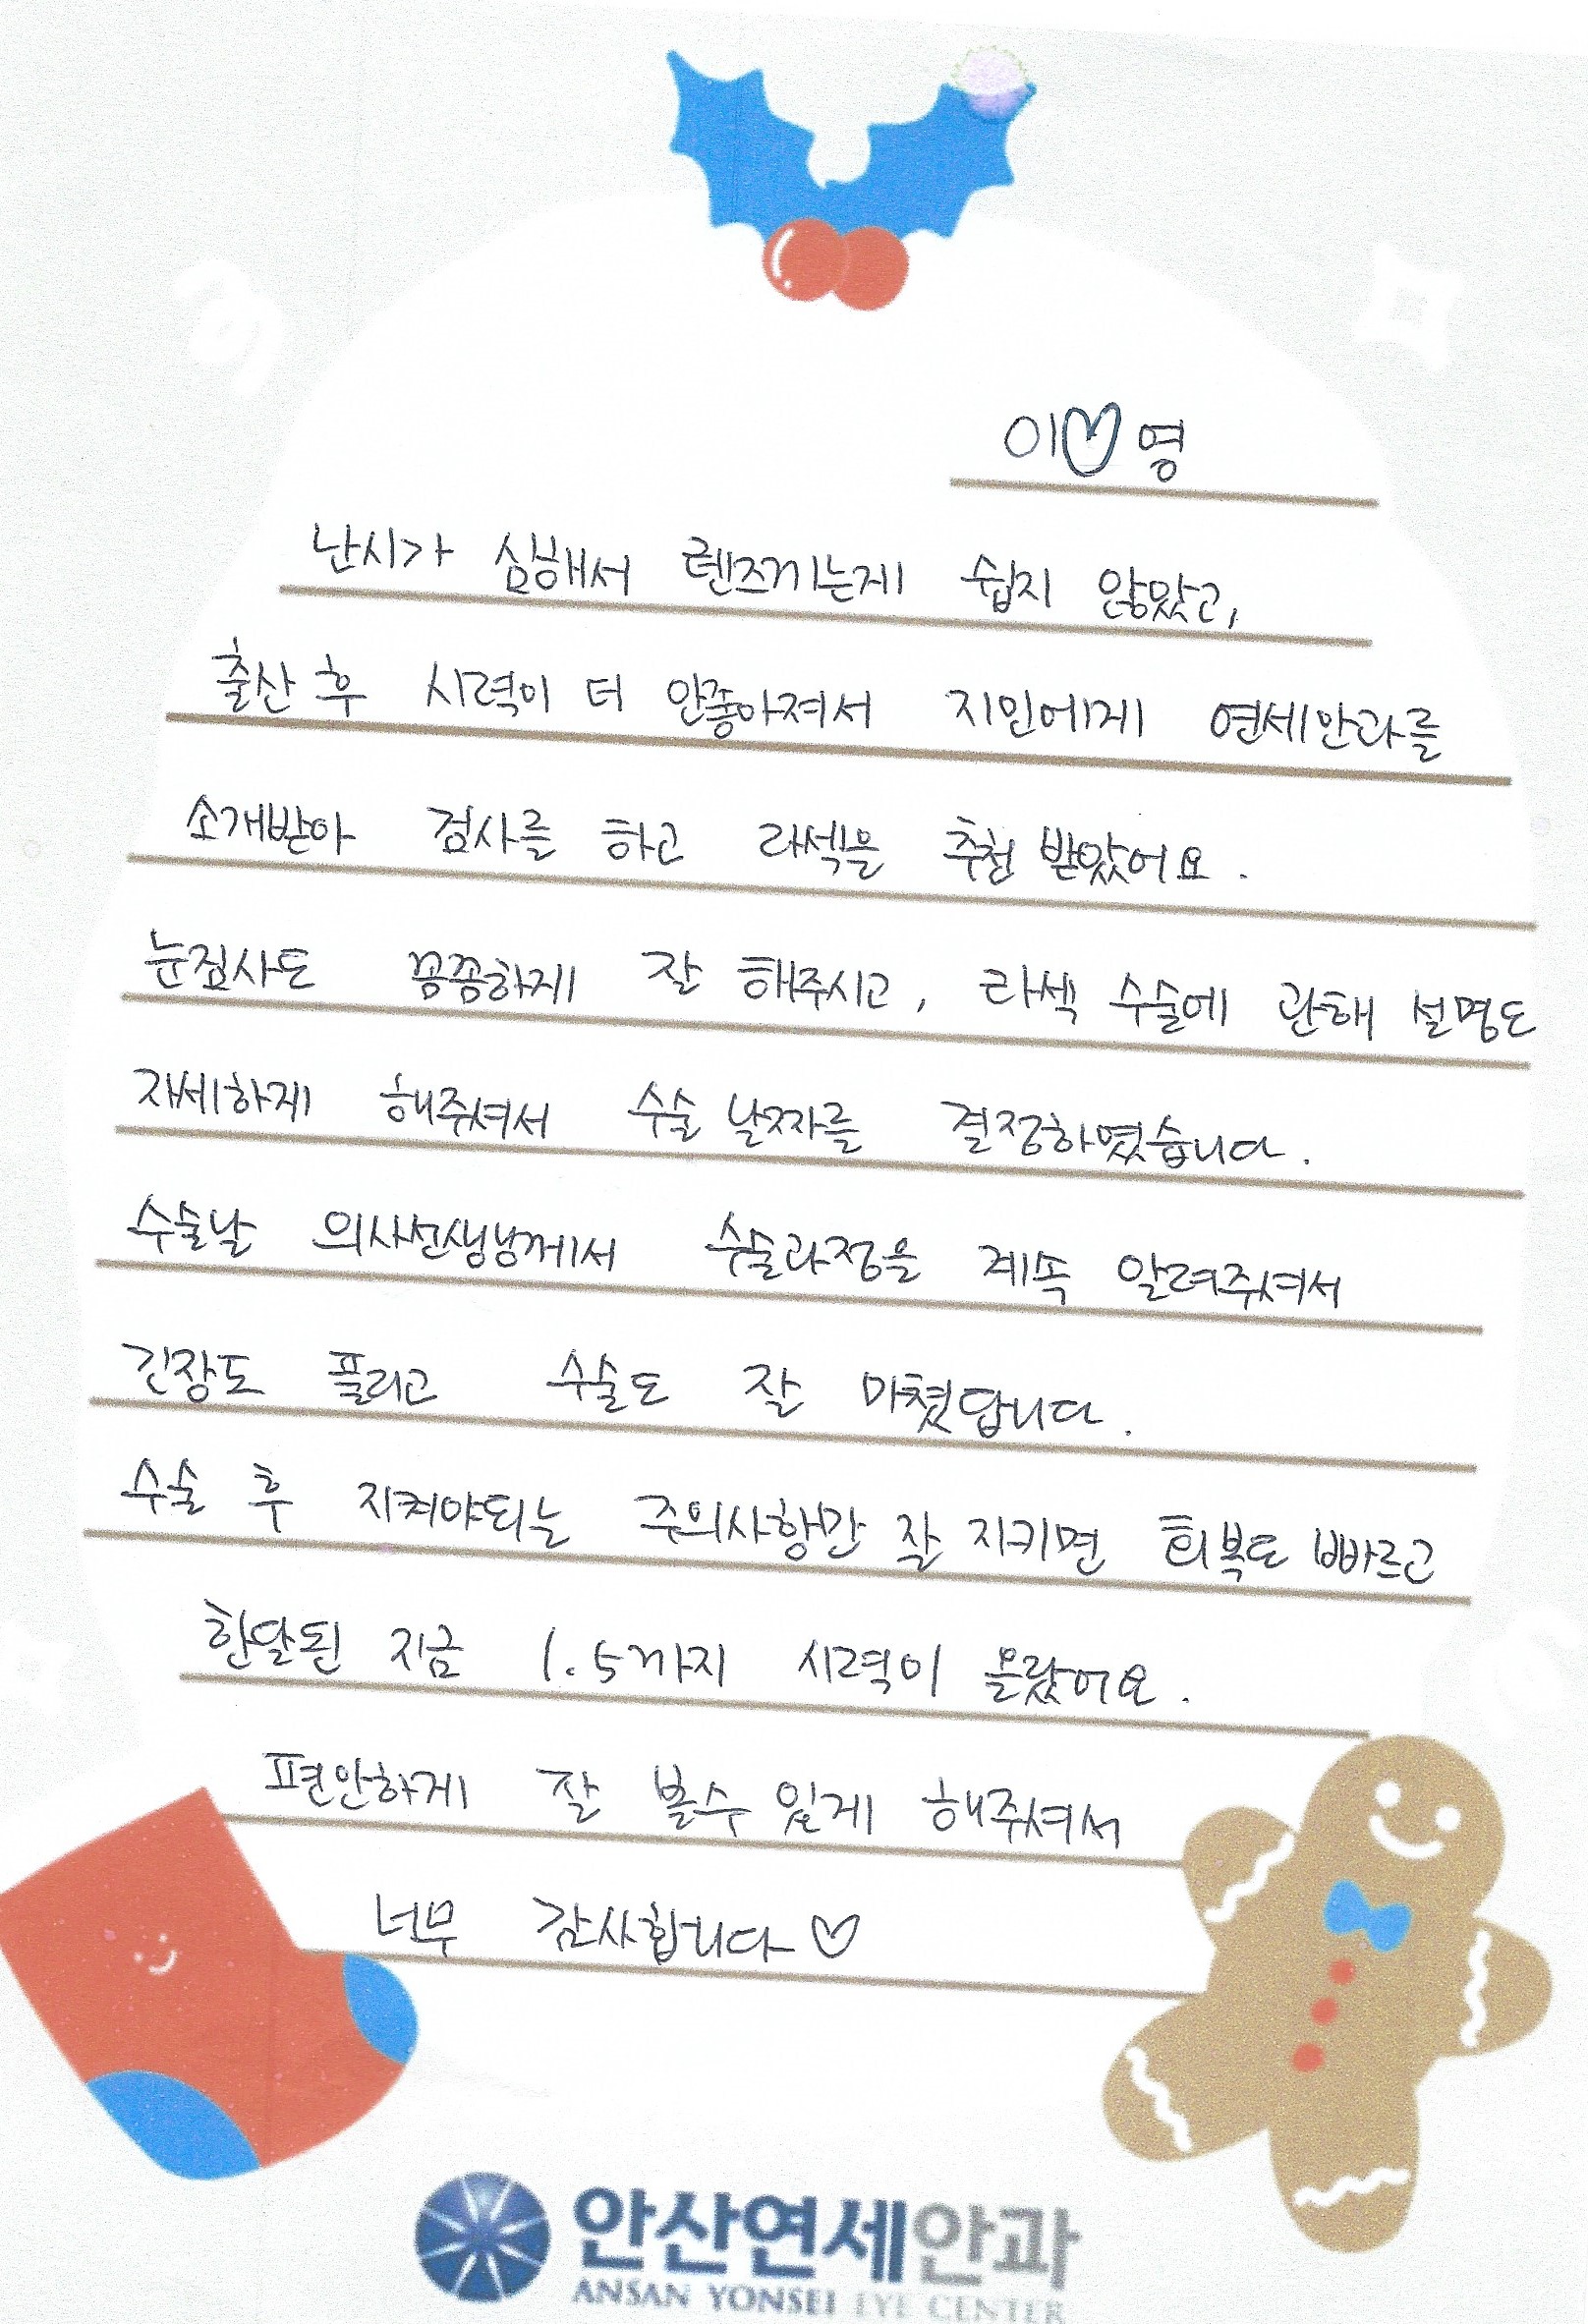 이♡영
난시가 심해서 렌즈끼는게 쉽지 않았고,
출산 후 시력이 더 안좋아져서 지인에게 연세안과를
소개받아 검사를 하고 라섹을 추천 받았어요.
눈검사도 꼼꼼하게 잘 해주시고, 라섹 수술에 관해 설명도
자세하게 해주셔서 수술 날짜를 결정하였습니다.
수술날 의사선생님께서 수술과정을 계속 알려주셔서
긴장도 풀리고 수술도 잘 마쳤답니다.
수술 후 지켜야되는 주의사항만 잘 지키면 회복도 빠르고
한달된 지금 1.5까지 시력이 올랐어요.
편안하게 잘 볼수 있게 해주셔서
너무 감사합니다♡
안산연세안과
ANSAN YONSEI EYE CENTER